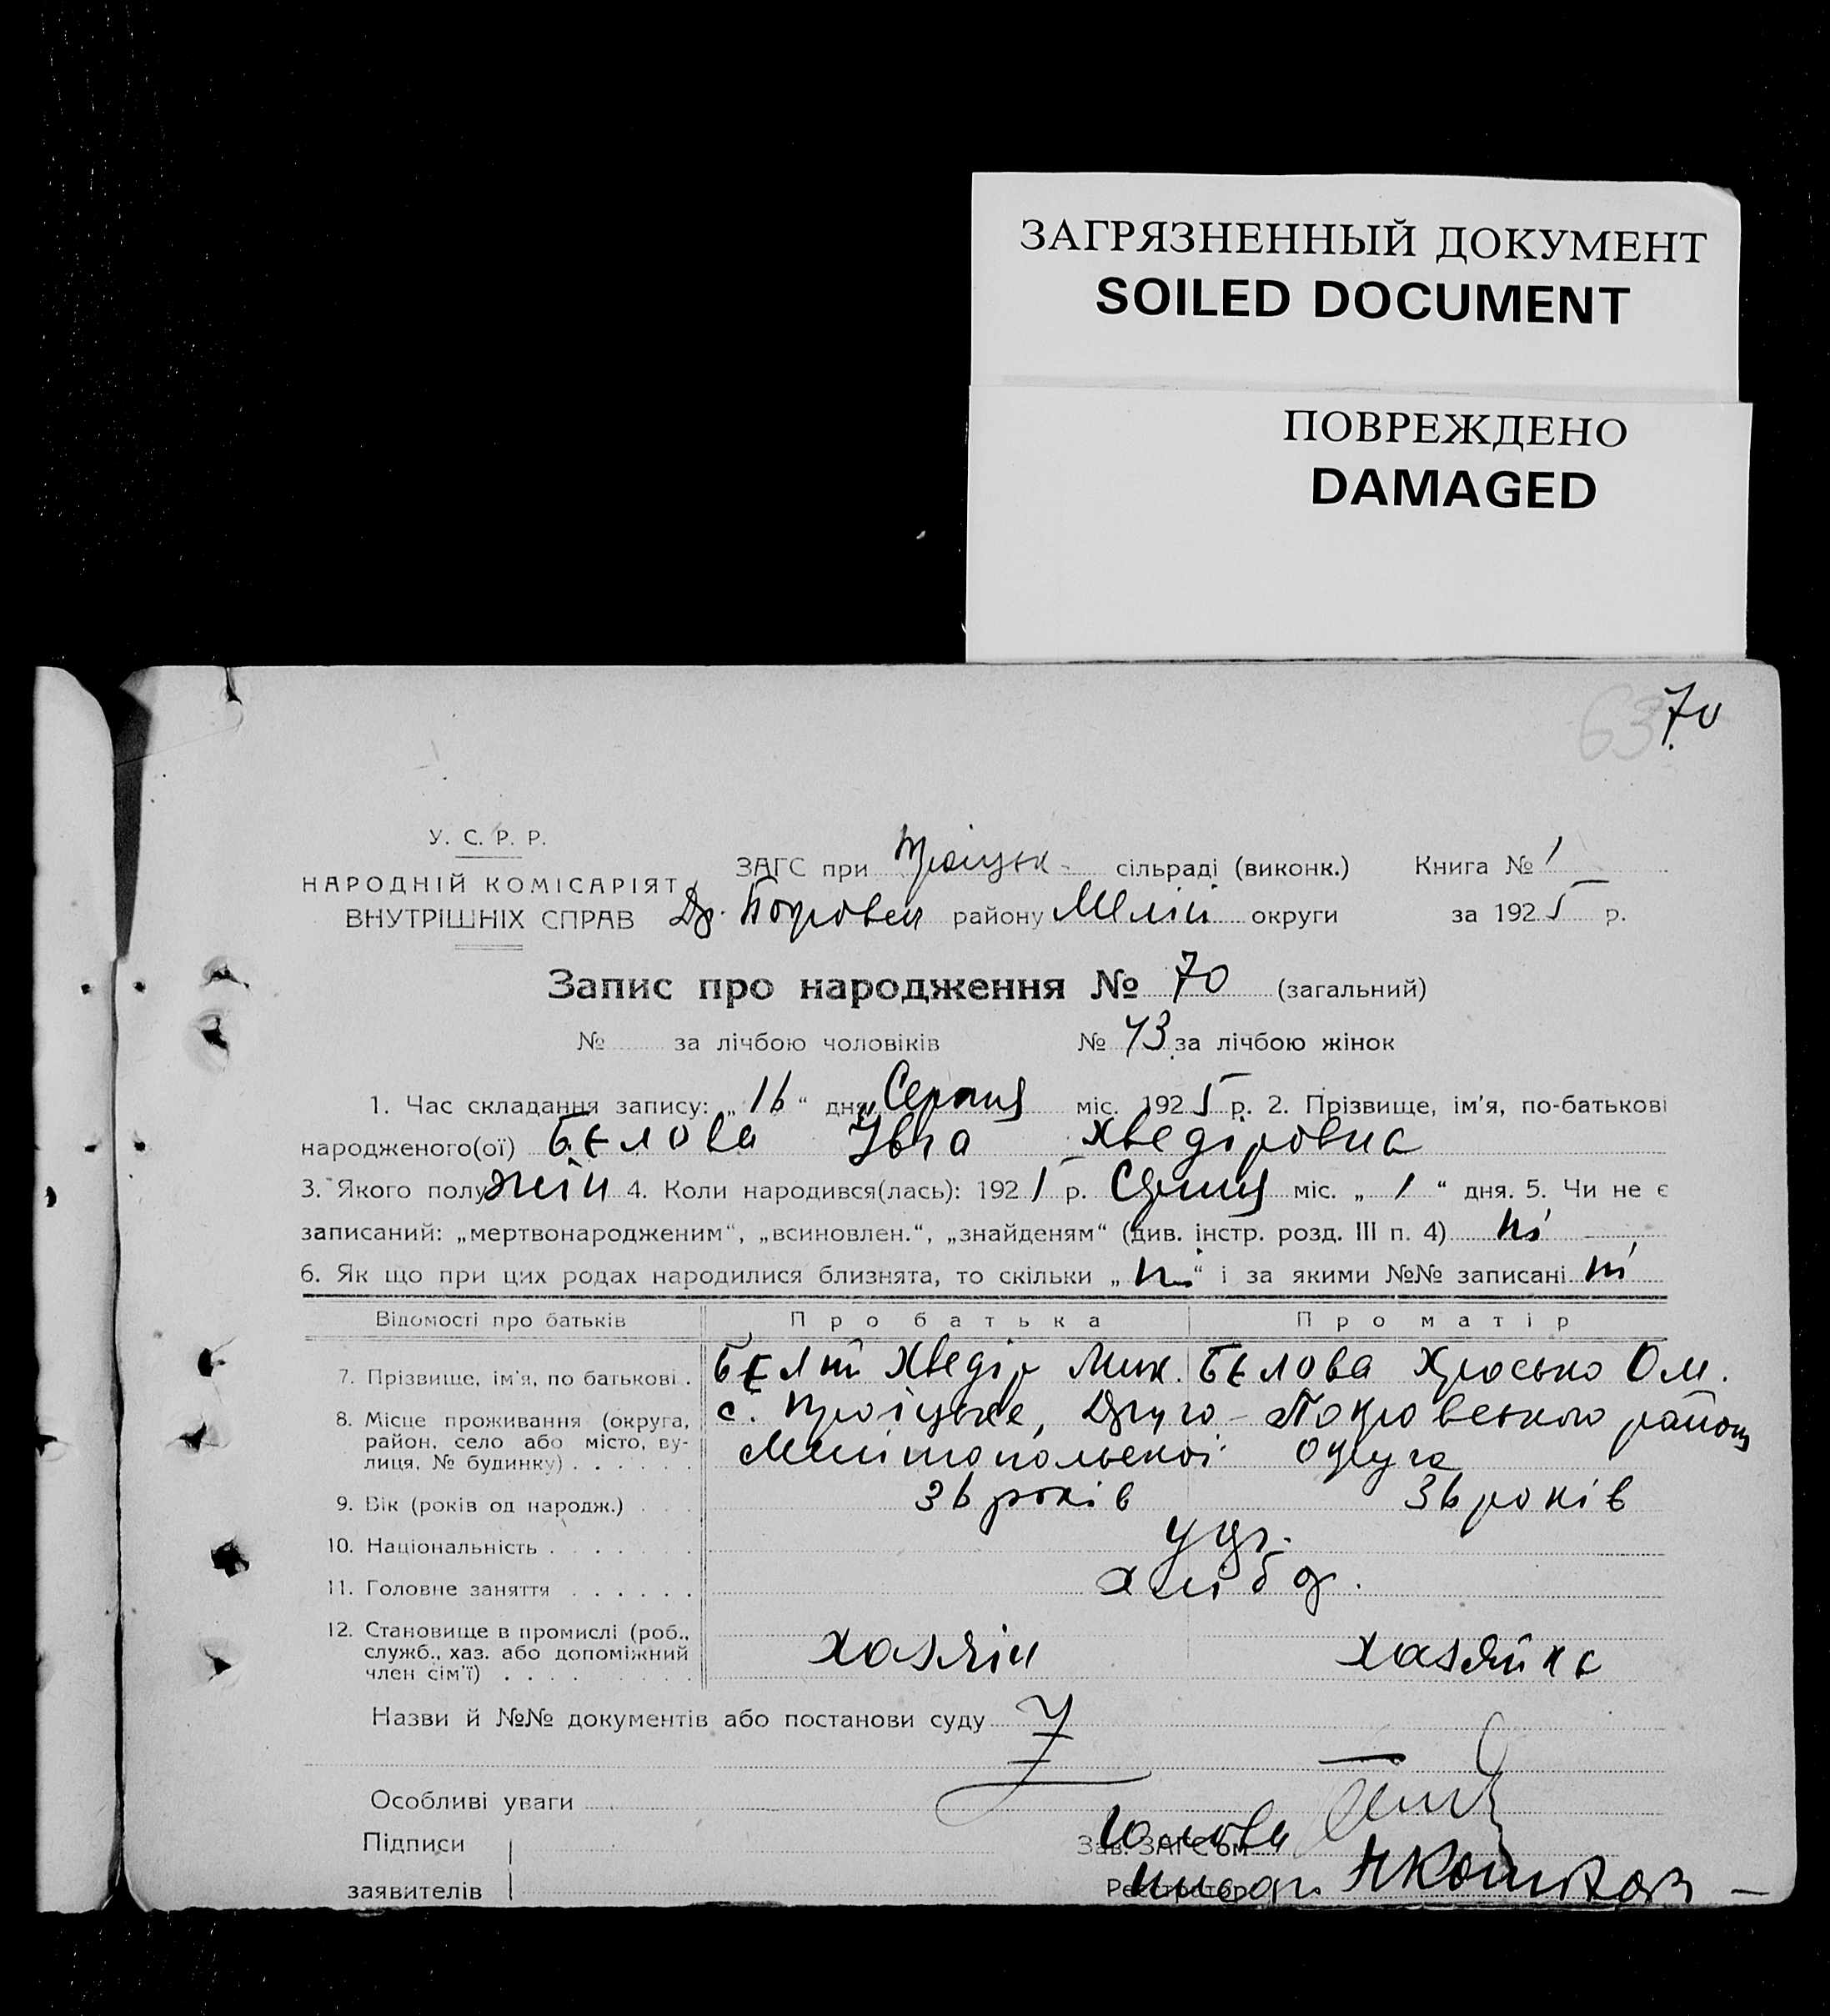 ЗАГРЯЗНЕННЫЙ ДОКУМЕНТ
SOILED DOCUMENT
ПОВРЕЖДЕНО
DAMAGED
63 70
У. С. Р. Р.
НАРОДНІЙ КОМІСАРІЯТ
ВНУТРІШНІХ СПРАВ
ЗАГС при Троіцьк- сільраді (виконк.) Книга № 1
Др. Покровск району Меліт округи за 1925 р.
Запис про народження № 70 (загальний)
№ за лічбою чоловіків № 43 за лічбою жінок
1. Час складання запису: „16“ дня Серпня міс. 1925 р. 2. Прізвище, ім'я, по-батькові
народженого(ої) Бєлова Івга Хведіровна
3. Якого полу жін 4. Коли народився(лась): 192 р. Серпня міс. „1“ дня. 5. Чи не є
записаний: „мертвонародженим“, „всиновлен.“, „знайденям“ (див. інстр. розд. III п. 4) ні
6. Як що при цих родах народилися близнята, то скільки „ні“ і за якими №№ записані ні
Відомості про батьків Про батька Про матір
7. Прізвище, ім'я, по батькові . Бєлий Хведір Мик. Бєлова Хросько Ом.
8. Місце проживання (округа, район, село або місто, вулиця, № будинку) с. Троіцьке, Друго-Покровського району
Мелітопольскоі округа
9. Вік (років од народж.) 36 років 36 років
10. Національність укр.
11. Головне заняття хлібор.
12. Становище в промислі (роб., служб., хаз. або допоміжний член сім'ї) хазяін хазяйка
Назви й №№ документів або постанови суду
Особливі уваги
Підписи
заявителів
Зав. ЗАГС'ом Голова
Реєстратор